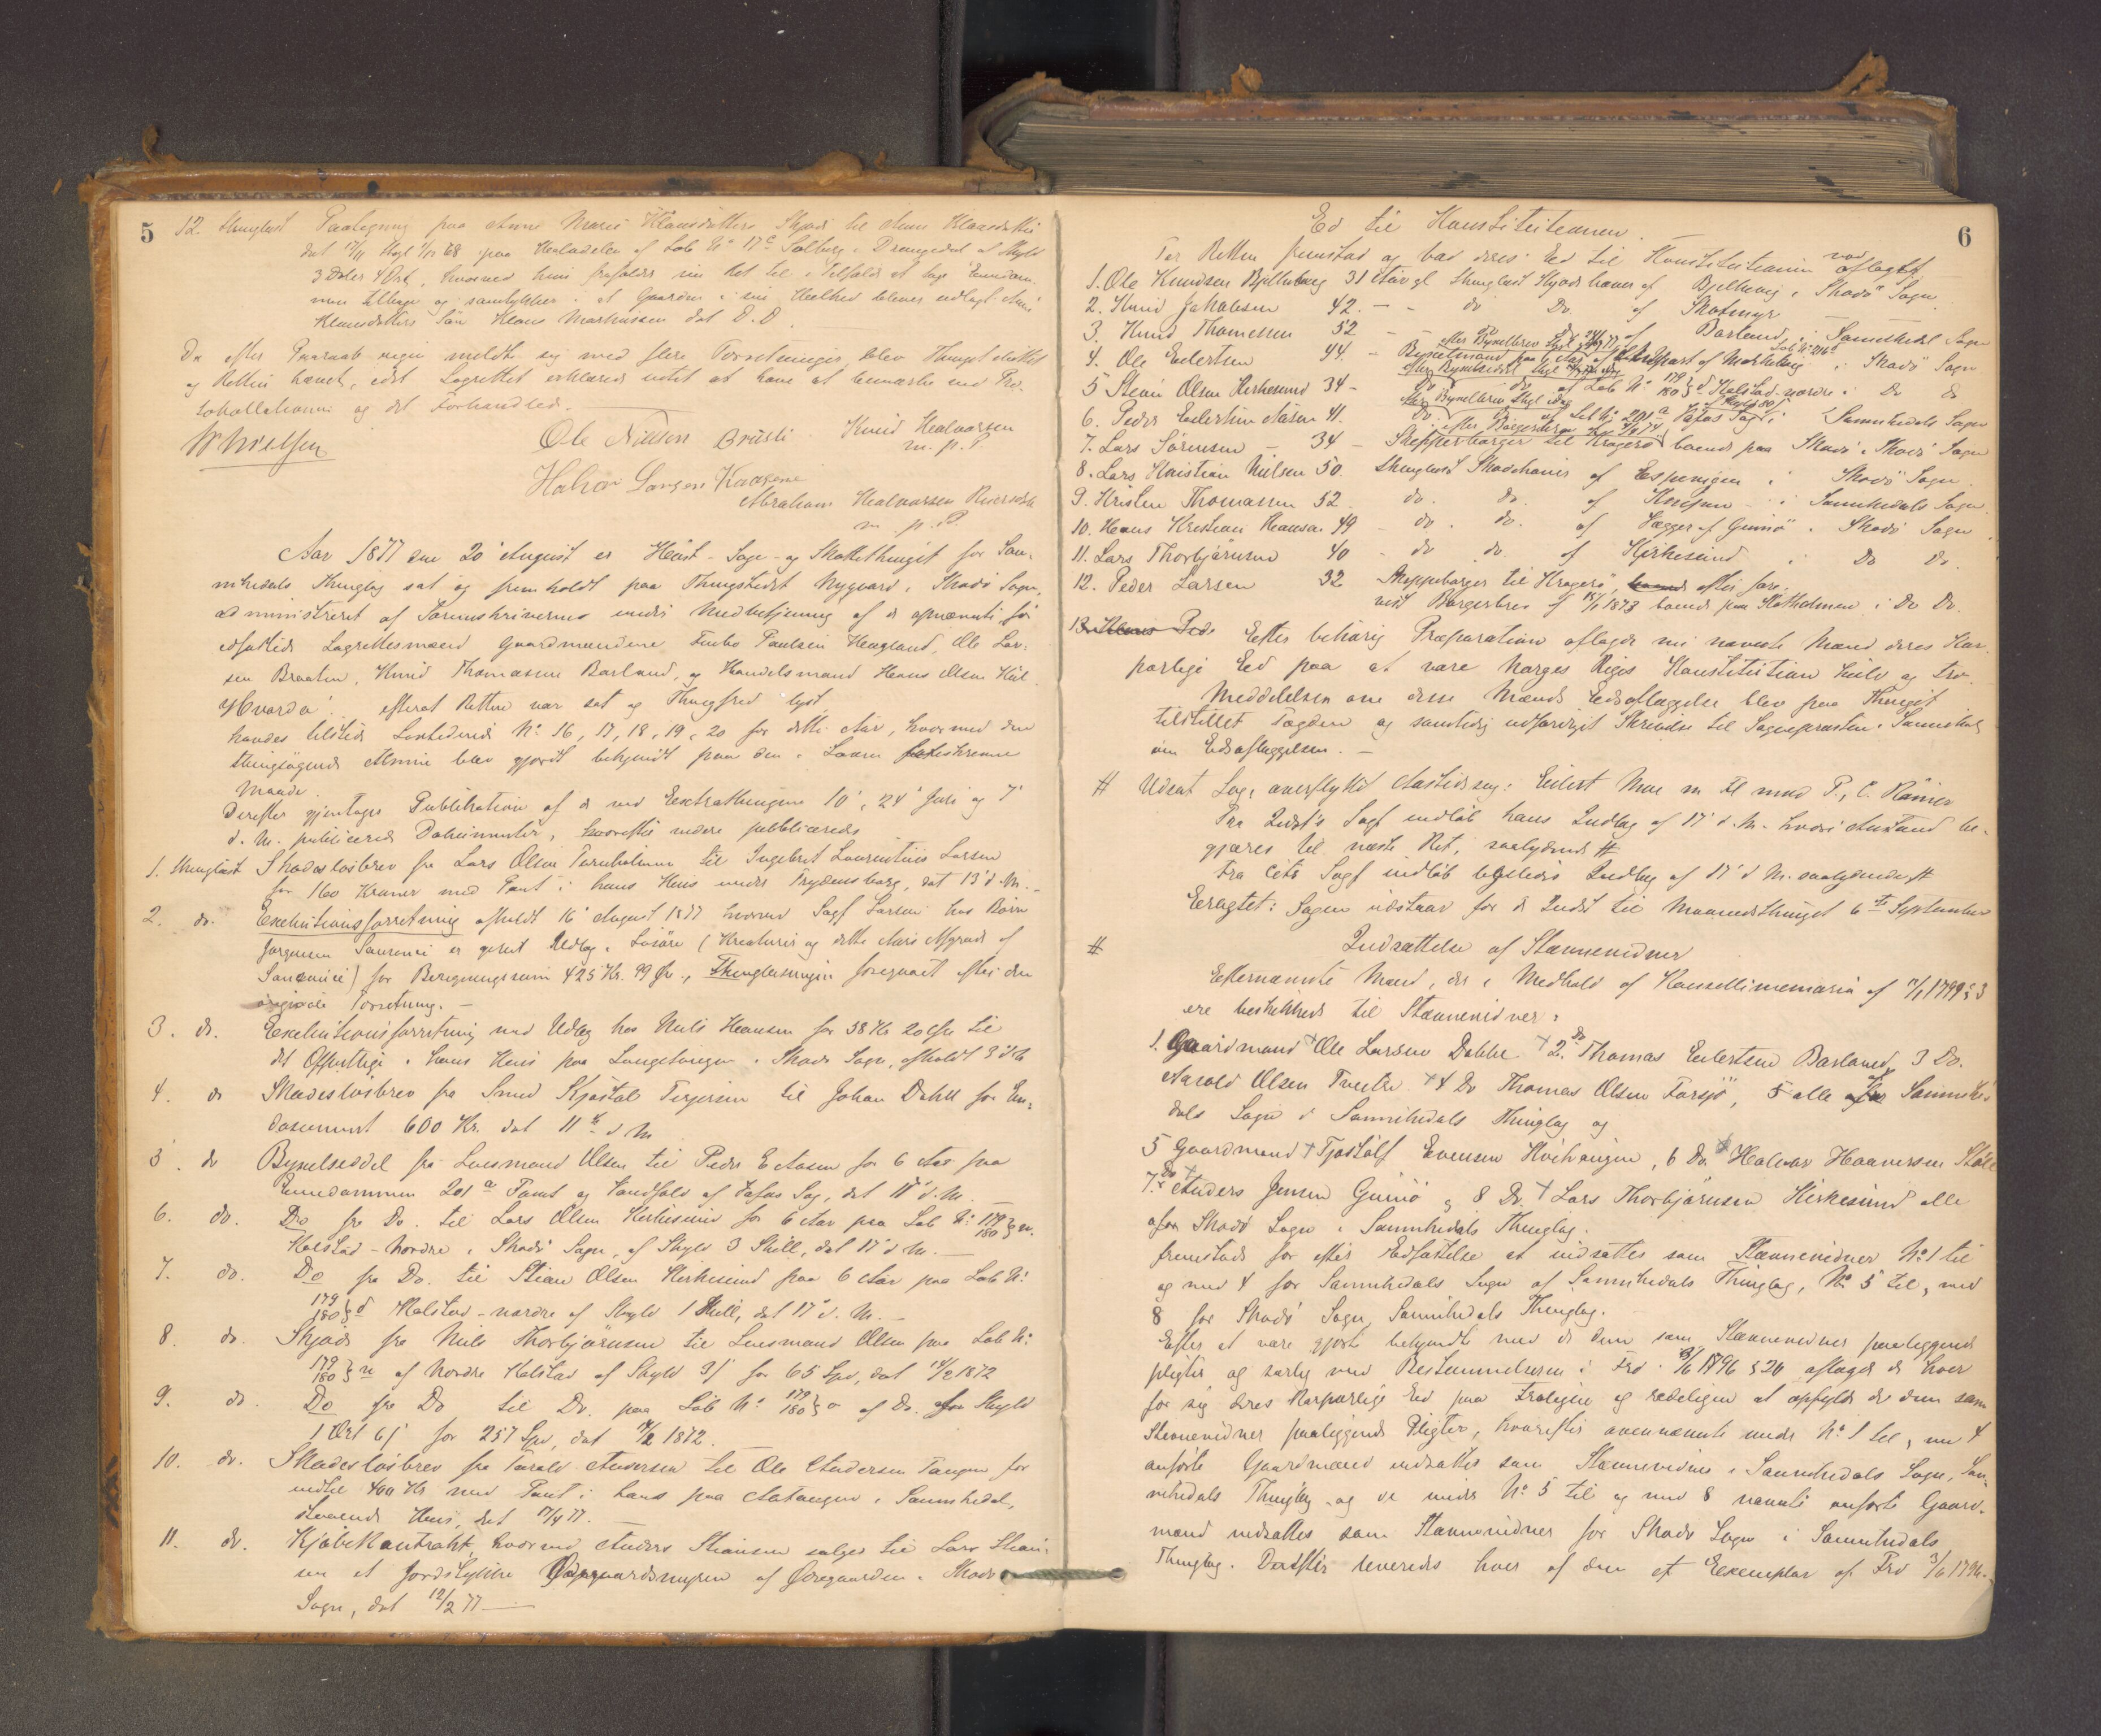 5
12. thinglæst Paategning paa Anne Marie Klausdatters Skjøde til Anne Klausdatter
dat 17/11 thgl 1/12 68 paa Halvdelen af Løb No 17c Solberg i Drangedal af Skyld
3 Daler 4 Ort, hvorved hun frafalder sin Ret til i Tilfælde at tage Eiendom-
men tilbage og samtykker i at Gaarden i sin Helhed bliver udlagt Anne
Klausdatters Søn Klaus Markussen dat D.D.
Da efter Paaraab ingen meldte sig med flere Forretninger, blev Thinget sluttet
og Retten hævet, idet Lagrettet erklærede intet at have at bemærke ved Pro-
tokollationen og det Forhandlede.
W Nielsen
Ole Nilsen Braaten Knud Halvorsen
m. p. P.
Halvor Larsen Kaasene
Abraham Halvorsen
m. p. P.
Aar 1877 den 20de August er Høst- Sage- og Skattethinget for San-
nikedals Thinglag sat og fremholdt paa Thingstedet Nygaard i Skaadø Sogn,
administreret af Sorenskriveren under Medbetjening af de opnævnte før
edfæstede Lagrettesmænd Gaardmændene Paulsen Haugland, Ole Lar-
sen Braaten, Knud Thomassen Barland, og Handelsmand Hans Olsen Hul-
Hvorda: efterat Retten var sat og Thingfred lyst
havdes tilstede Lovtidende No 16, 17, 18, 19, 20 for dette Aar, hvormed den
thingsøgende Almue blev gjort bekjendt paa den i Loven foreskrevne
Maade.
Derefter gjentoges Publikation af de ved Extrathingene 10de, 24de Juli og 7de
d. M. publicerede Dokumenter, hvorefter videre publiceredes
1. thinglæst Skadesløsbrev fra Lars Olsen Furuholmen til Ingebret Laurentius Larsen
for 160 Kroner med Pant i hans Hus under Frydensborg, dat 13de d. M.
2. do. Exekutionsforretning afholdt 16de August 1877 hvorved Sagf Larsen hos Bjørn
Jørgensen er gjort Udlæg i Løsøre (Kreaturer og dette Aars Afgrøde af
) for Beregningssum 425 Kr. 99 Øre, Thinglæsningen foregaaet efter den
originale Forretning.
3. do. Exekutionsforretning med Udlæg hos Niels Hansen for 38 Kr 20 Øre til
det Offentlige i hans Hus paa Langetangen i Skaadø Sogn, afholdt
4. do Skadesløsbrev fra Smed Kjøstol Terjesen til Johan Dahll for En-
dossement 600 Kr. dat 11te d M
5. do Bygselseddel fra Lensmand Olsen til Peder E Aasen for 6 Aar paa
Eiendommen 201a Tomt og Vandfald af Fafos Sag, dat 11te d. M.
6. do. Do fra Do. til Lars Olsen Kirkesund for 6 Aar paa Løb No 179/180 n.
Kalstad-nordre i Skaadø Sogn, af Skyld 3 Skill, dat 17de d. M.
7. do. Do fra Do. til Stian Olsen Kirkesund paa 6 Aar paa Løb No
179/180 d Kalstad-nordre af Skyld 1 Skill, dat 17de d. M.
8. do. Skjøde fra Niels Thorbjørnsen til Lensmand Olsen paa Løb No
179/180 n af Nordre Kalstad af Skyld 3 ſ for 65 Spd, dat 14/2 1872
9. do. Do fra Do til Do. paa Løb No 179/180 o af Do. for Skyld
1 Ort 6 ſ for 257 Spd, dat 14/2 1872.
10. do. Skadesløsbrev fra Tarald Andersen til Ole Andersen Tangen for
indtil 400 Kr med Pant i hans paa Aatangen i Sannikedal,
staaende Hus, dat 17/4 77.
11. do. Kjøbekontrakt, hvorved Anders Stiansen sælger til Lars Stian-
sen et Jordstykke af Øregaarden i Skaadø
Sogn, dat 12/2 77
6
Ed til Konstitutionen.
For Retten fremstod og bad deres Ed til Konstitutionen modtaget
1. Ole Knudsen Bjelkevig 31 Aar gl thinglæst Skjødehaver af Bjelkevig i Skaadø Sogn
2. Knud Jakobsen 42. - do Do. af Skotmyr
3. Knud Thomessen 52 - af Barland i Sannikedal Sogn
4. Ole Eilertsen 44. - Bygselmand paa i Skaadø Sogn
5 Stian Olsen Kirkesund 34 - Do do. af Løb No 179/180 d Kalstad-nordre i Do do
6. Peder Eilertsen Aasen 41. Do. do af Løb No 201a Fafos Sag i Sannikedals Sogn
7. Lars Sørensen - 34 - Skipperborger til Kragerø boende paa i Skaadø Sogn
8. Lars Kristian Nielsen 50 thinglæst Skjødehaver af Espevigen i Skaadø Sogn.
9. Kristen Thomassen 52 do. do. af i Sannikedals Sogn.
10. Hans Kristian Hansen 49 - do. do. af af Gumø i Skaadø Sogn
11. Lars Thorbjørnsen 40 - do do. af Kirkesund i Do Do.
12. Peder Larsen 32 Skipperborger til Kragerø, efter fore-
vist Borgerbrev af 15/1 1873 boende paa Slotholmen i Do Do.
13. Hans Ped. Efter behørig Præparation aflagde nu nævnte Mænd deres Kor-
porlige Ed paa at være Norges Riges Konstitution huld og tro.
Meddelelsen om disse Mænds Edsaflæggelse blev paa Thinget
tilstillet Fogden og samtidig udfærdiget Skrivelse til Sognepræsten i Sannikedal
om Edsaflæggelsen.
# Udsat Sag, overflyttet Aastedssag: Eilert Moe m fl mod P. C. Rømer
Fra Sagf indløb hans Indlæg af 17de d. M. hvori Anstand be-
gjæres til næste Ret, saalydende #
Fra Cit Sagf indløb ligeledes Indlæg af 17de d M. saalydende #
Eragtet: Sagen udstaar for det Indst til Maanedsthinget 6te September
# Indsættelse af Stævnevidner
Efternævnte Mænd, der i Medhold af Kancellipromemoria af 1799 § 3
ere beskikkede til Stævnevidner:
1. Gaardmand Ole Larsen Dobbe 2. do Thomas Eilertsen Barland, 3 Do.
Aarold Olsen Tveite 4 Do Thomas Olsen Farsjø, 5 alle af Sannike-
dals Sogn i Sannikedals Thinglag og
5 Gaardmand Tjostolf Evensen, 6 Do. Halvor Haavorsen
7. Do Anders Jensen Gumø og 8 Do. Lars Thorbjørnsen Kirkesund alle
af Skaadø Sogn i Sannikedals Thinglag.
fremstod for efter Edfæstelse at indsættes som Stævnevidner No 1 til
og med 4 for Sannikedals Sogn af Sannikedals Thinglag, No 5 til, med
8 for Skaadø Sogn, Sannikedals Thinglag.
Efter at være gjorte bekjendt med de dem som Stævnevidner paaliggende
pligter og særlig med Bestemmelserne i Frd. 3/6 1796 § 20 aflagde de hver
for sig deres Korporlige Ed paa troligen og redeligen at opfylde de dem som
Stevnevidner paaliggende Pligter, hvorefter ovennævnte under No 1 til, med 4
anførte Gaardmænd indsattes som Stævnevidner i Sannikedals Sogn, San-
nikedals Thinglag og de under No 5 til og med 8 nævnte anførte Gaard-
mænd indsattes som Stævnevidner for Skaadø Sogn i Sannikedals
Thinglag. Derefter leveredes hver af dem et Exemplar af Frd 3/6 1796.